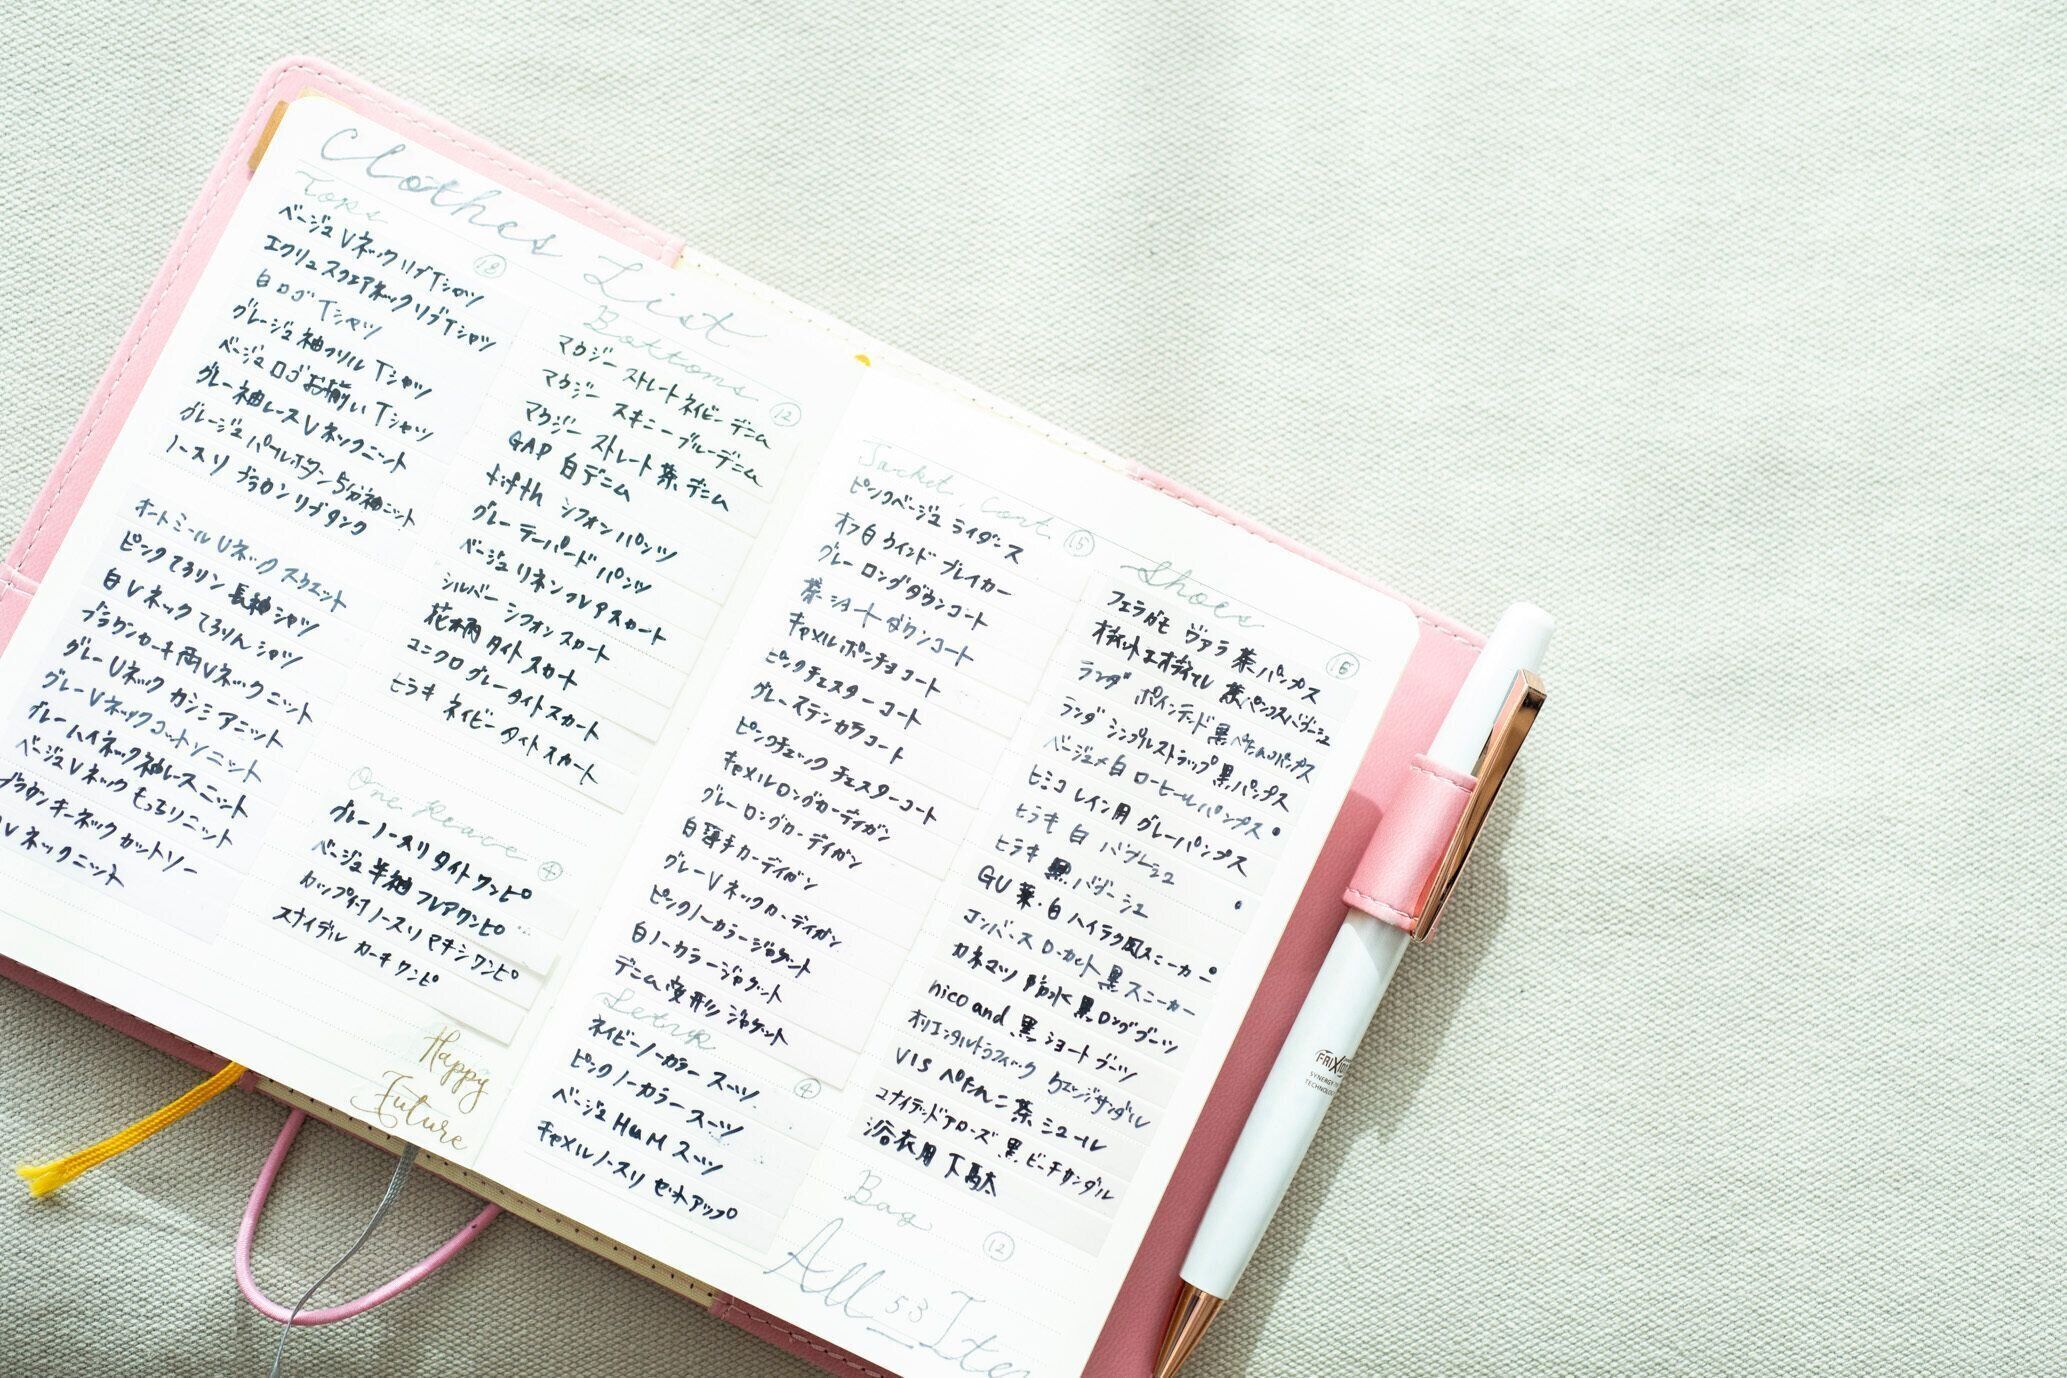 Clothes List
Tops
18
ベージュVネックリブTシャツ
エクリュスクエアネックリブTシャツ
白ロゴTシャツ
グレージュ袖フリルTシャツ
ベージュロゴお揃いTシャツ
グレー袖レースVネックニット
グレージュパールボタン5分袖ニット
ノースリブラウンリブタンク
オートミールUネックスウェット
ピンクてろりん長袖シャツ
白Vネックてろりんシャツ
ブラウンカーキ両Vネックニット
グレーUネックカシミアニット
グレーVネックコットンニット
グレーハイネック袖レースニット
ベージュVネックもっちりニット
ブラウンキーネックカットソー
Vネックニット
Bottoms
12
マウジー ストレートネイビーデニム
マウジー スキニーブルーデニム
マウジー ストレート茶デニム
GAP 白デニム
fifth シフォンパンツ
グレーテーパードパンツ
ベージュリネンフレアスカート
シルバーシフォンスカート
花柄タイトスカート
ユニクログレータイトスカート
ヒラキ ネイビータイトスカート
One Peace
4
グレーノースリタイトワンピ
ベージュ半袖フレアワンピ
カップ付ノースリマキシワンピ
スナイデル カーキワンピ
Happy
Future
Jacket, Coat
15
ピンクベージュライダース
オフ白ウインドブレイカー
グレーロングダウンコート
茶ショートダウンコート
キャメルポンチョコート
ピンクチェスターコート
グレーステンカラコート
ピンクチェックチェスターコート
キャメルロングカーディガン
グレーロングカーディガン
白薄手カーディガン
グレーVネックカーディガン
ピンクノーカラージャケット
白ノーカラージャケット
デニム変形ジャケット
Setup
4
ネイビーノーカラースーツ
ピンクノーカラースーツ
ベージュH&Mスーツ
キャメルノースリセットアップ
Shoes
16
フェラガモ ヴァラ 茶パンプス
オデットエオディール 茶パンプスバブーシュ
ランダ ポインテッド黒ぺたんこパンプス
ランダ シンプルストラップ黒パンプス
ベージュ×白ローヒールパンプス
ヒミコ レイン用グレーパンプス
ヒラキ 白 バブーシュ
ヒラキ 黒バブーシュ
GU 茶・白ハイテク風スニーカー
コンバース ローカット黒スニーカー
カネマツ 防水黒ロングブーツ
nico and 黒ショートブーツ
オリエンタルトラフィック ウェッジサンダル
VIS ぺたんこ茶ミュール
ユナイテッドアローズ 黒ビーチサンダル
浴衣用下駄
Bag
12
All 53 Ite
FRIXION
SYNERGY
TECHNOLOGY